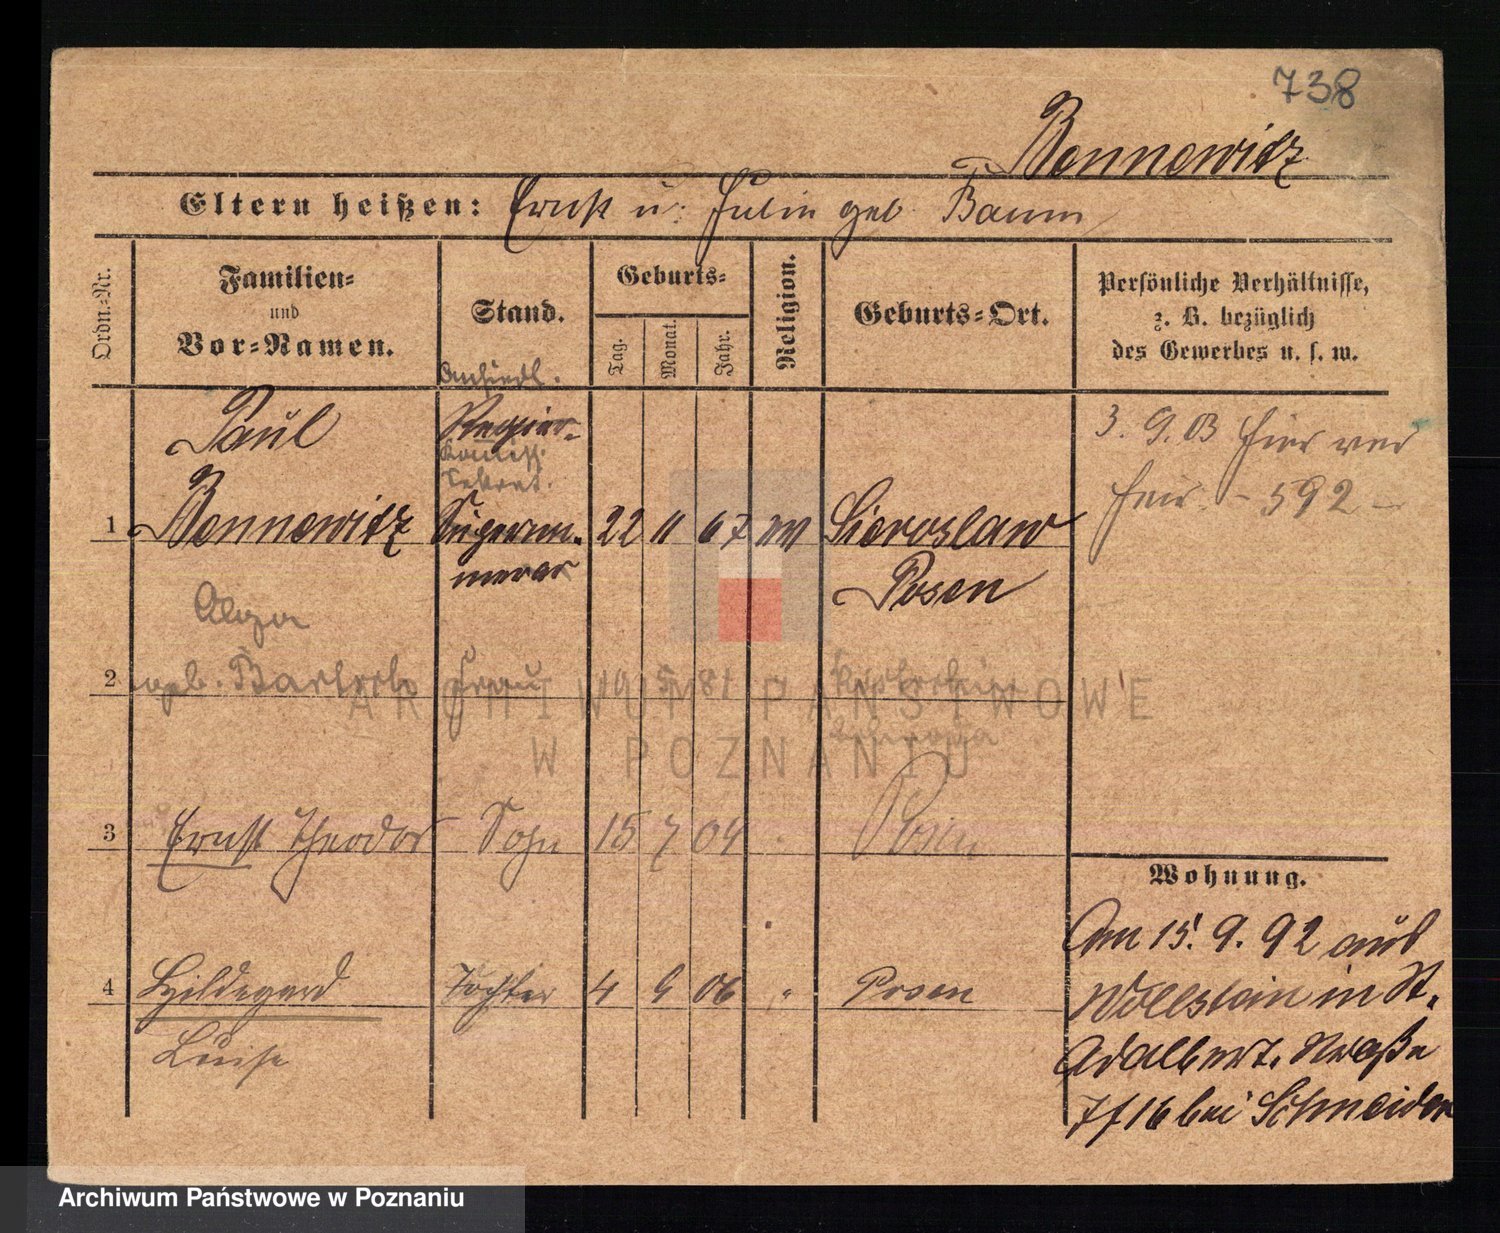 738
Bennewitz
Eltern heißen: Ernst u. Julie geb. Baum
Ordn.-Nr.
Familien-
und
Vor-Namen.
Stand.
Geburts-
Tag.
Monat.
Jahr.
Religion.
Geburts-Ort.
Persönliche Verhältnisse,
z. B. bezüglich
des Gewerbes u. s. w.
Ansiedl.
Paul
Regier.-
Komiss.
Sekret.
1 Bennewitz Supernu- 22 11 67 Sieroslaw
merar Posen
3. 9. 03 hier
592
2 geb. Frau 19 5 81
3 Ernst Theodor Sohn 15 7 04 Posen
4 Hildegard Tochter 4 9 06 " Posen
Luise
Wohnung.
Am 15. 9. 92 aus
Wollstein in St.
Adalbert. Straße
16 bei Schneider
ARCHIWUM PAŃSTWOWE
W POZNANIU
Archiwum Państwowe w Poznaniu